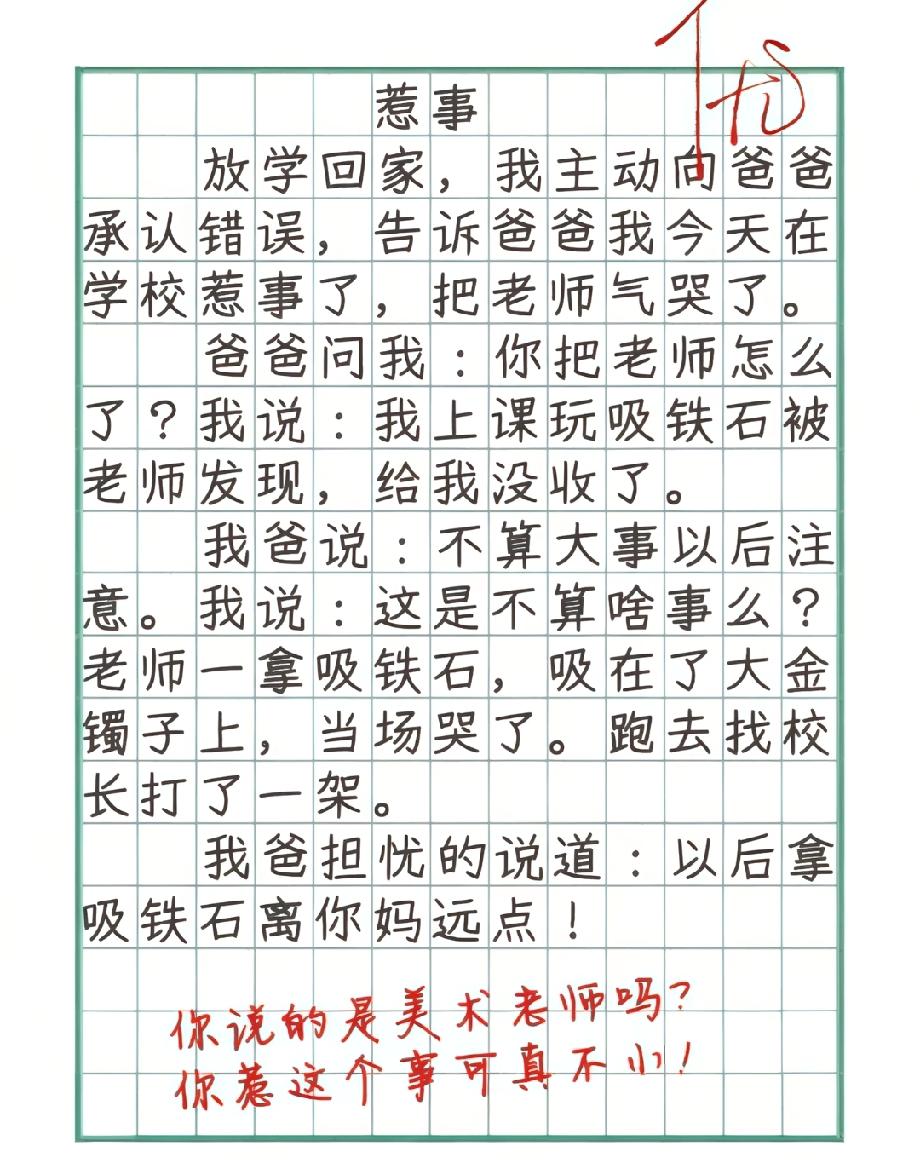 优
惹事
放学回家，我主动向爸爸
承认错误，告诉爸爸我今天在
学校惹事了，把老师气哭了。
爸爸问我：你把老师怎么
了？我说：我上课玩吸铁石被
老师发现，给我没收了。
我爸说：不算大事以后注
意。我说：这是不算啥事么？
老师一拿吸铁石，吸在了大金
镯子上，当场哭了。跑去找校
长打了一架。
我爸担忧的说道：以后拿
吸铁石离你妈远点！
你说的是美术老师吗？
你惹这个事可真不小！